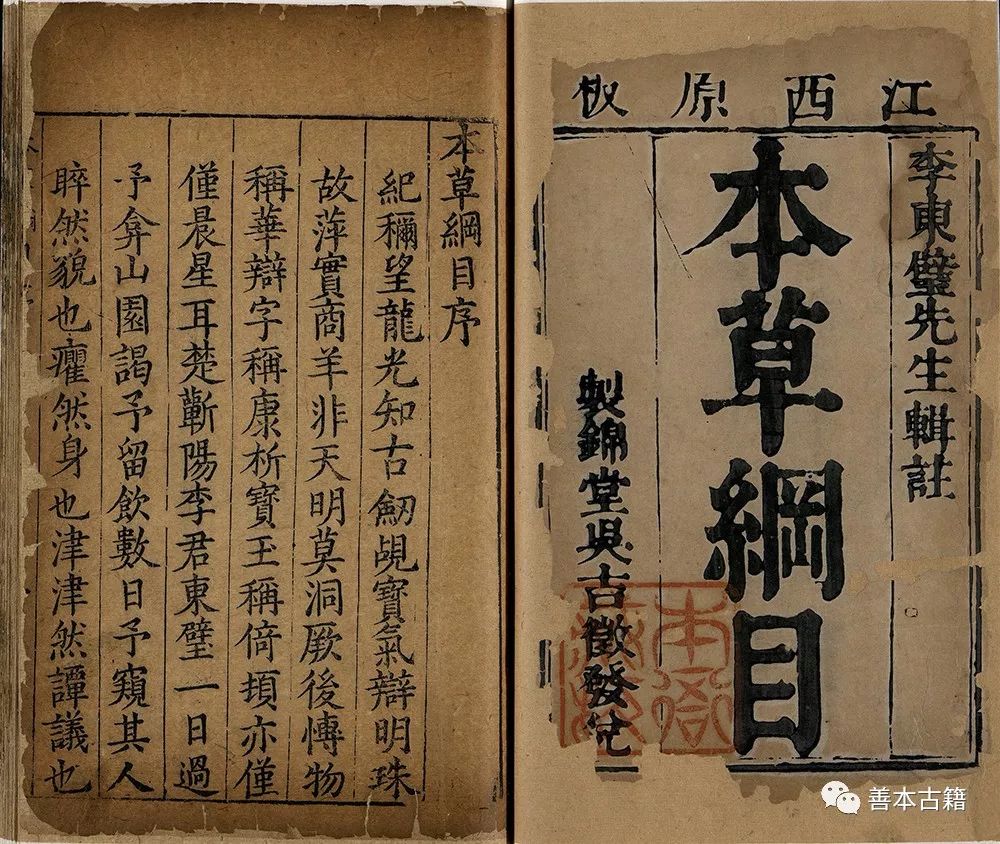 江西原板
李東璧先生輯註
本草綱目
製錦堂吳吉徵發兌
本衙
本草綱目序
紀稱望龍光知古劒覘寶氣辯明珠
故萍實商羊非天明莫洞厥後愽物
稱華辯字稱康析寶玉稱倚頓亦僅
僅晨星耳楚蘄陽李君東璧一日過
予弇山園謁予留飲數日予窺其人
睟然貌也癯然身也津津然譚議也
善本古籍